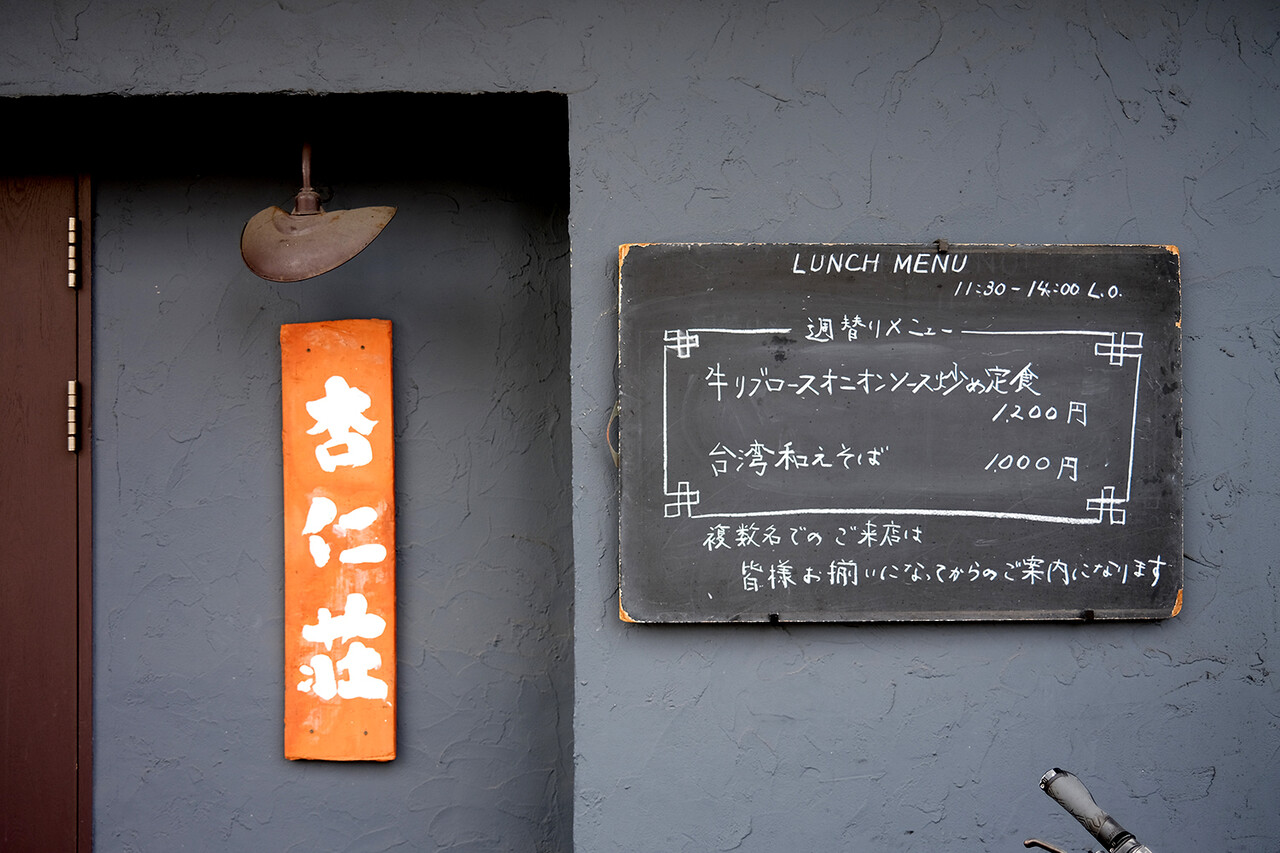 杏仁荘
LUNCH MENU
11:30-14:00 L.O.
週替りメニュー
牛リブロースオニオンソース炒め定食
1,200円
台湾和えそば 1,000円
複数名でのご来店は
皆様お揃いになってからのご案内になります